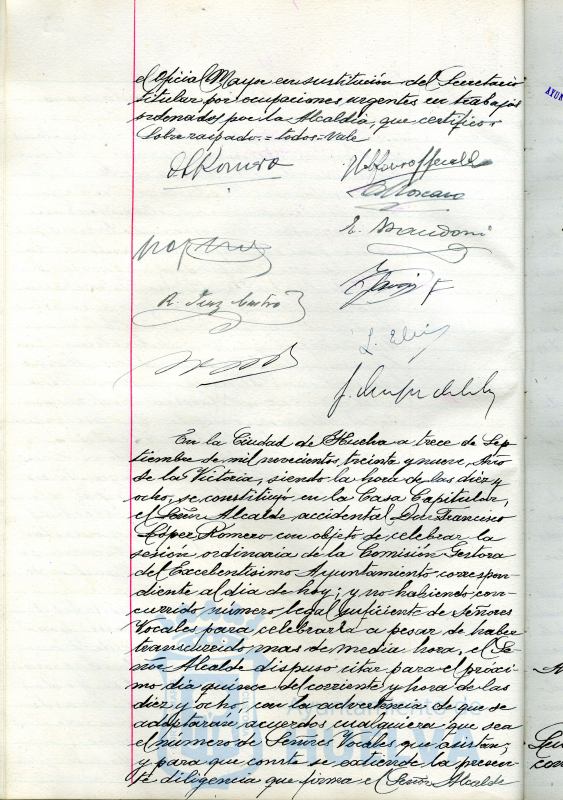 el Oficial Mayor en sustitución del Secretario
titular por ocupaciones urgentes en trabajos
ordenados por la Alcaldía, que certifico=
Sobre raspado.=todos=Vale
R. Díaz
En la Ciudad de Huelva a trece de Sep-
tiembre de mil novecientos treinta y nueve, Año
de la Victoria, siendo la hora de las diez y
ocho, se constituyó en la Casa Capitular,
el Señor Alcalde accidental Don Francisco
López Romero con objeto de celebrar la
sesión ordinaria de la Comisión Gestora
del Excelentísimo Ayuntamiento correspon-
diente al día de hoy; y no habiendo con-
currido número legal suficiente de Señores
Vocales para celebrarla a pesar de haber
transcurrido mas de media hora, el Se-
ñor Alcalde dispuso citar para el próxi-
mo día quince del corriente y hora de las
diez y ocho, con la advertencia de que se
adoptaran acuerdos cualquiera que sea
el número de Señores Vocales que asistan;
y para que conste se extiende la presen-
te diligencia que firma el Señor Alcalde